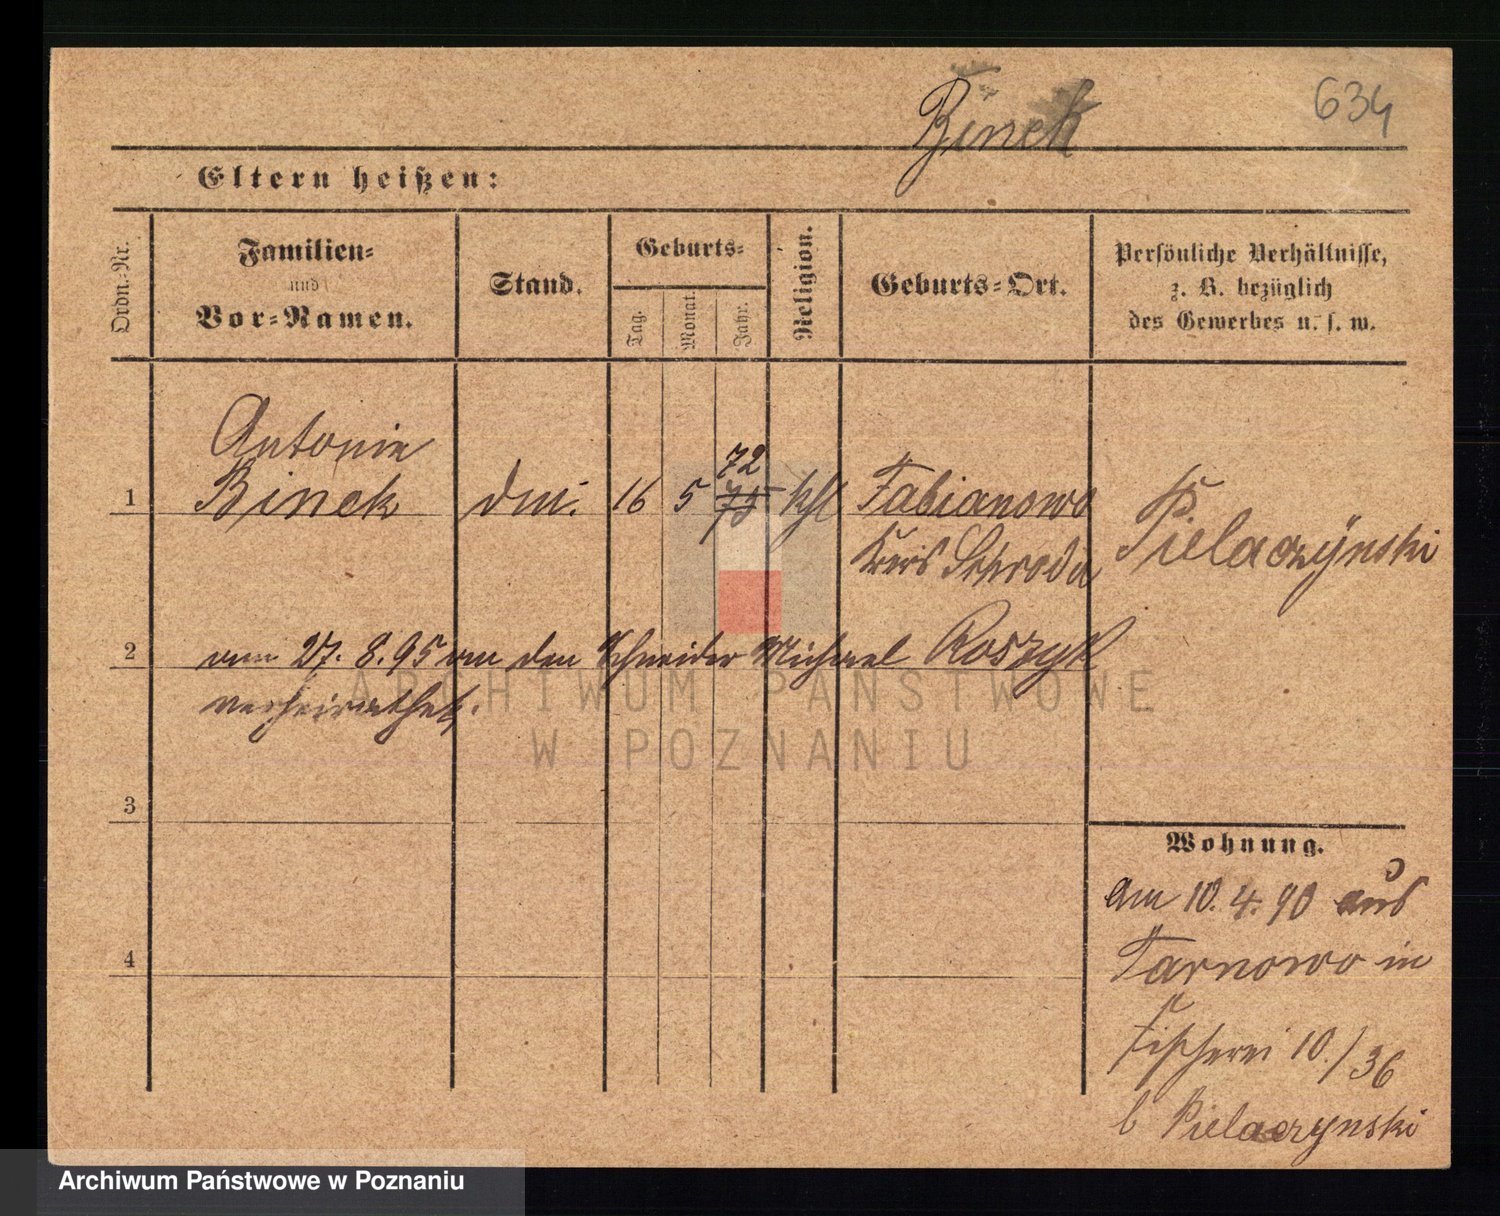 Binek
634
Eltern heißen:
Ordn.-Nr.
Familien-
und
Vor-Namen.
Stand.
Geburts-
Tag.
Monat.
Jahr.
Religion.
Geburts-Ort.
Persönliche Verhältnisse,
z. B. bezüglich
des Gewerbes u. s. w.
Antonie
72
1 Binek 16 5 75 kthl Fabianowo
Kreis Schroda
Pielaczynski
2 am 27. 8. 95 an den Schneider Michael Roszyk
verheirathet.
ARCHIWUM PAŃSTWOWE
W POZNANIU
3
Wohnung.
am 10. 4. 90 aus
4
Tarnowo in
Fischerei 10./36
b Pielaczynski
Archiwum Państwowe w Poznaniu